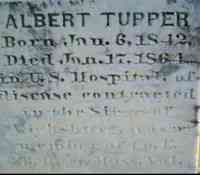 ALBERT TUPPER
Born Jan. 6, 1842,
Died Jan. 17, 1864
in U.S. Hospital, of
disease contracted
in the Siege of
Vicksburg,
Co.
Vol.